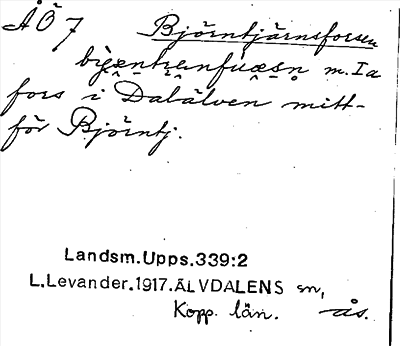 ÅÖ 7 Björntjärnsforsen
m. Ia
fors i Dalälven mitt-
för Björntj.
Landsm.Upps.339:2
L.Levander.1917.ÄLVDALENS sn,
Kopp. län. ås.